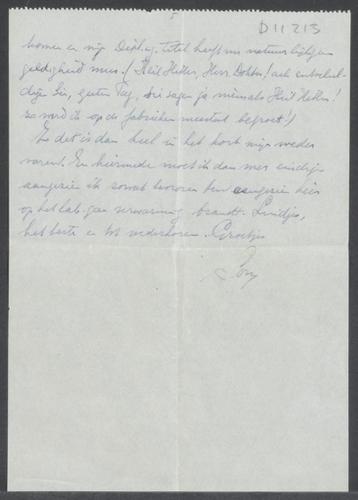 5
D 11 213
komen en mijn titel heeft nu natuurlijk geen
geldigheid meer. (Heil Hitler, Herr Doktor! ach entschul-
digen Sie, guten Tag, Sie sagen ja niemals Heil Hitler!
zo word ik op de fabrieken meestal begroet!)
Zo dat is dan heel in het kort mijn weder
varen. En hiermede moet ik dan maar eindigen
aangezien ik zowat bevroren ben aangezien hier
op het lab. geen verwarming brandt. Luidjes,
het beste en tot wederhoren. Groetjes